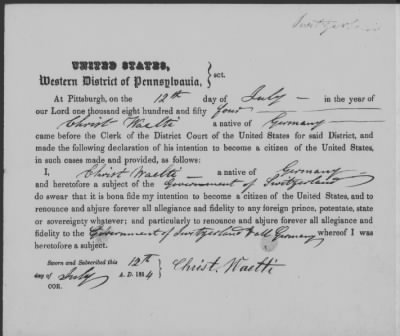 Switzerland
UNITED STATES,
Western District of Pennsylvania, } sct.
At Pittsburgh, on the 12th day of July — in the year of
our Lord one thousand eight hundred and fifty four
Christ Waelti — a native of Germany —
came before the Clerk of the District Court of the United States for said District, and
made the following declaration of his intention to become a citizen of the United States,
in such cases made and provided, as follows:
I, Christ Waelti — a native of Germany
and heretofore a subject of the Government of Switzerland
do swear that it is bona fide my intention to become a citizen of the United States, and to
renounce and abjure forever all allegiance and fidelity to any foreign prince, potentate, state
or sovereignty whatever; and particularly to renounce and abjure forever all allegiance and
fidelity to the Government of Switzerland & all Germany whereof I was
heretofore a subject.
Sworn and Subscribed this 12th
day of July A. D. 1854 } Christ. Waelti
COR.